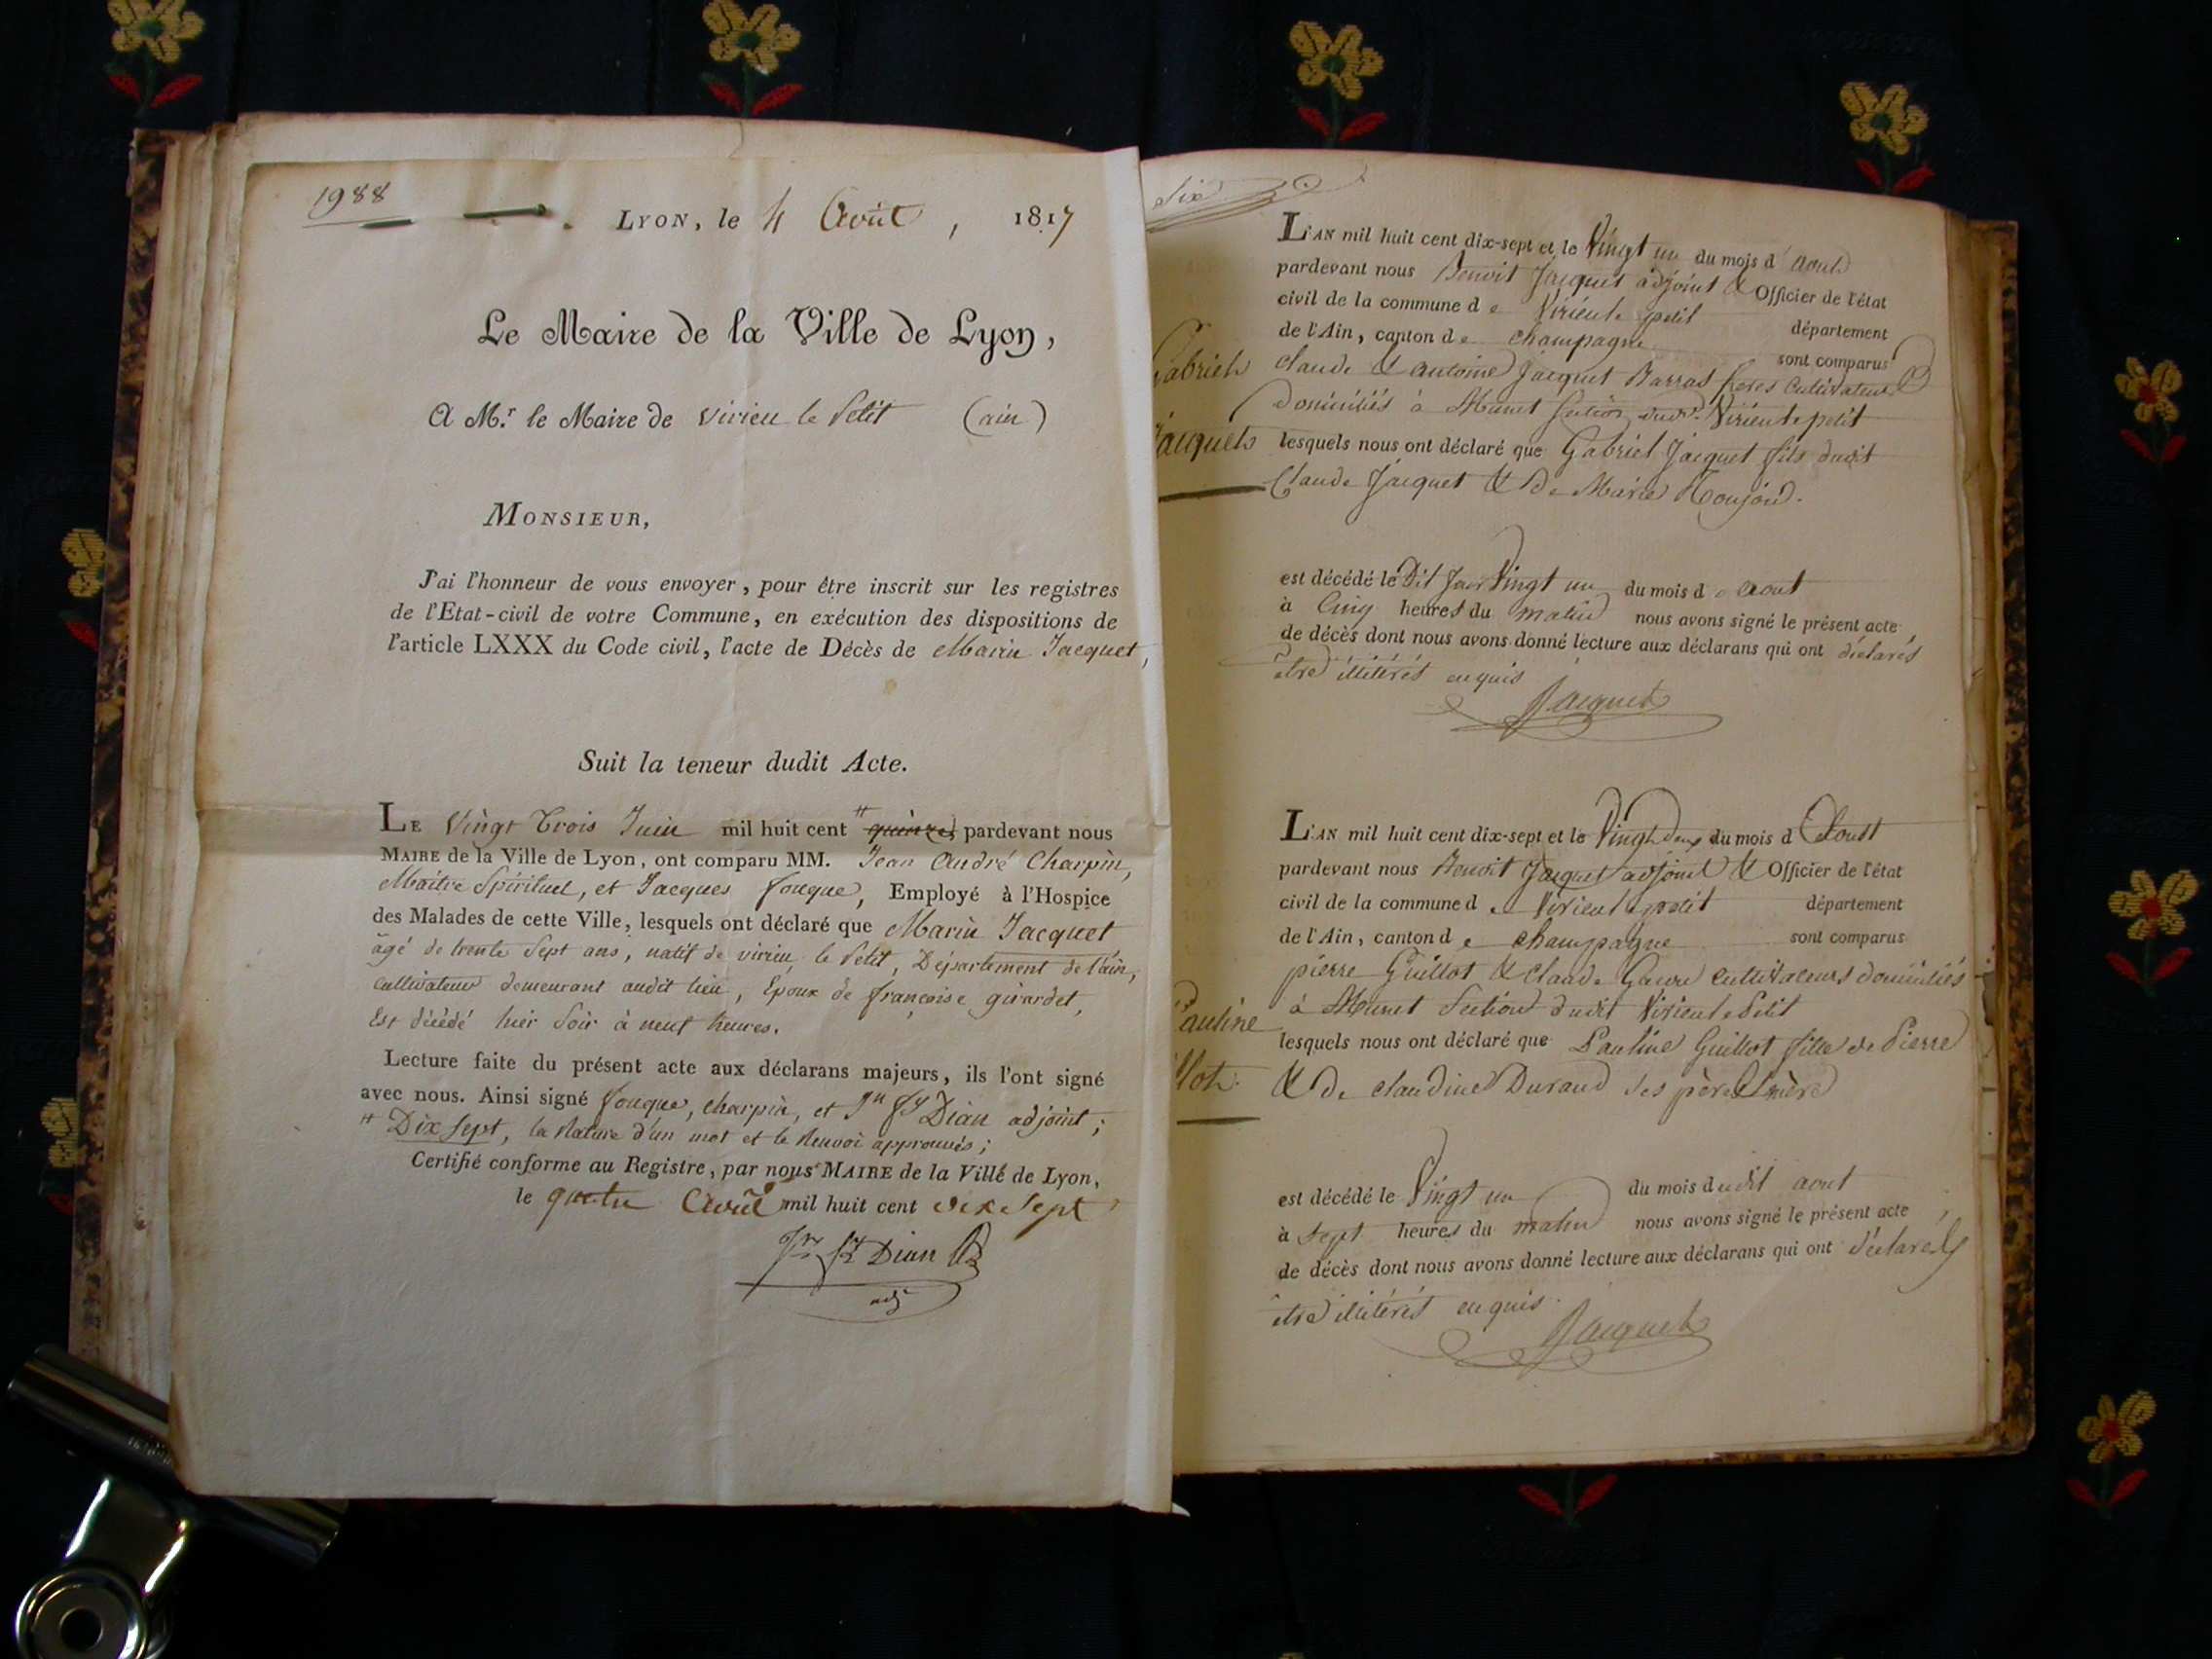 1988
LYON, le 4 Août, 1817
Le Maire de la Ville de Lyon,
A M.r le Maire de virieu le petit (ain)
MONSIEUR,
J'ai l'honneur de vous envoyer, pour être inscrit sur les registres
de l'Etat-civil de votre Commune, en exécution des dispositions de
l'article LXXX du Code civil, l'acte de Décès de Marin Jacquet,
Suit la teneur dudit Acte.
LE Vingt trois Juin mil huit cent # quinze, pardevant nous
MAIRE de la Ville de Lyon, ont comparu MM. Jean André Charpin,
Maitre Spirituel, et Jacques fouque, Employé à l'Hospice
des Malades de cette Ville, lesquels ont déclaré que Marin Jacquet
âgé de trente Sept ans, natif de virieu le Petit, Département de l'ain,
cultivateur demeurant audit lieu, Epoux de françoise girardet,
Est décédé hier Soir à neuf heures.
Lecture faite du présent acte aux déclarans majeurs, ils l'ont signé
avec nous. Ainsi signé fouque, charpin, et Jn fs Dian adjoint;
# Dix Sept, la Rature d'un mot et le Renvoi approuvés;
Certifié conforme au Registre, par nous MAIRE de la Ville de Lyon,
le quatre Août mil huit cent dix Sept
Jn fs Dian
adj
Six
L'AN mil huit cent dix-sept et le Vingt un du mois d'aout
pardevant nous Benoit Jacquet adjoint & Officier de l'état
civil de la commune de Virieu le petit département
de l'Ain, canton de champagne sont comparus
Gabriel
claude & antoine Jacquet Barras freres cultivateurs
Domiciliés à Munet Section dudt Virieu le petit
Jacquet
lesquels nous ont déclaré que Gabriel Jacquet fils dudit
Claude Jacquet & De Marie Roujon.
est décédé le Dit Jour Vingt un du mois d'aout
à Cinq heures du matin nous avons signé le présent acte
de décès dont nous avons donné lecture aux déclarans qui ont déclarés
être illitérés enquis
Jacquet
L'AN mil huit cent dix-sept et le Vingt deux du mois d'Aoust
pardevant nous Benoit Jacquet adjoint & Officier de l'état
civil de la commune de Virieu le petit département
de l'Ain, canton de champagne sont comparus
pierre Guillot & claude cultivateurs domiciliés
à Munet Section dudit Virieu le Petit
Pauline
lesquels nous ont déclaré que Pauline Guillot fille de Pierre
llot
& De claudine Durand ses père & mère
est décédé le Vingt un du mois dudit aout
à Sept heures du matin nous avons signé le présent acte
de décès dont nous avons donné lecture aux déclarans qui ont déclarés
être illitérés enquis.
Jacquet